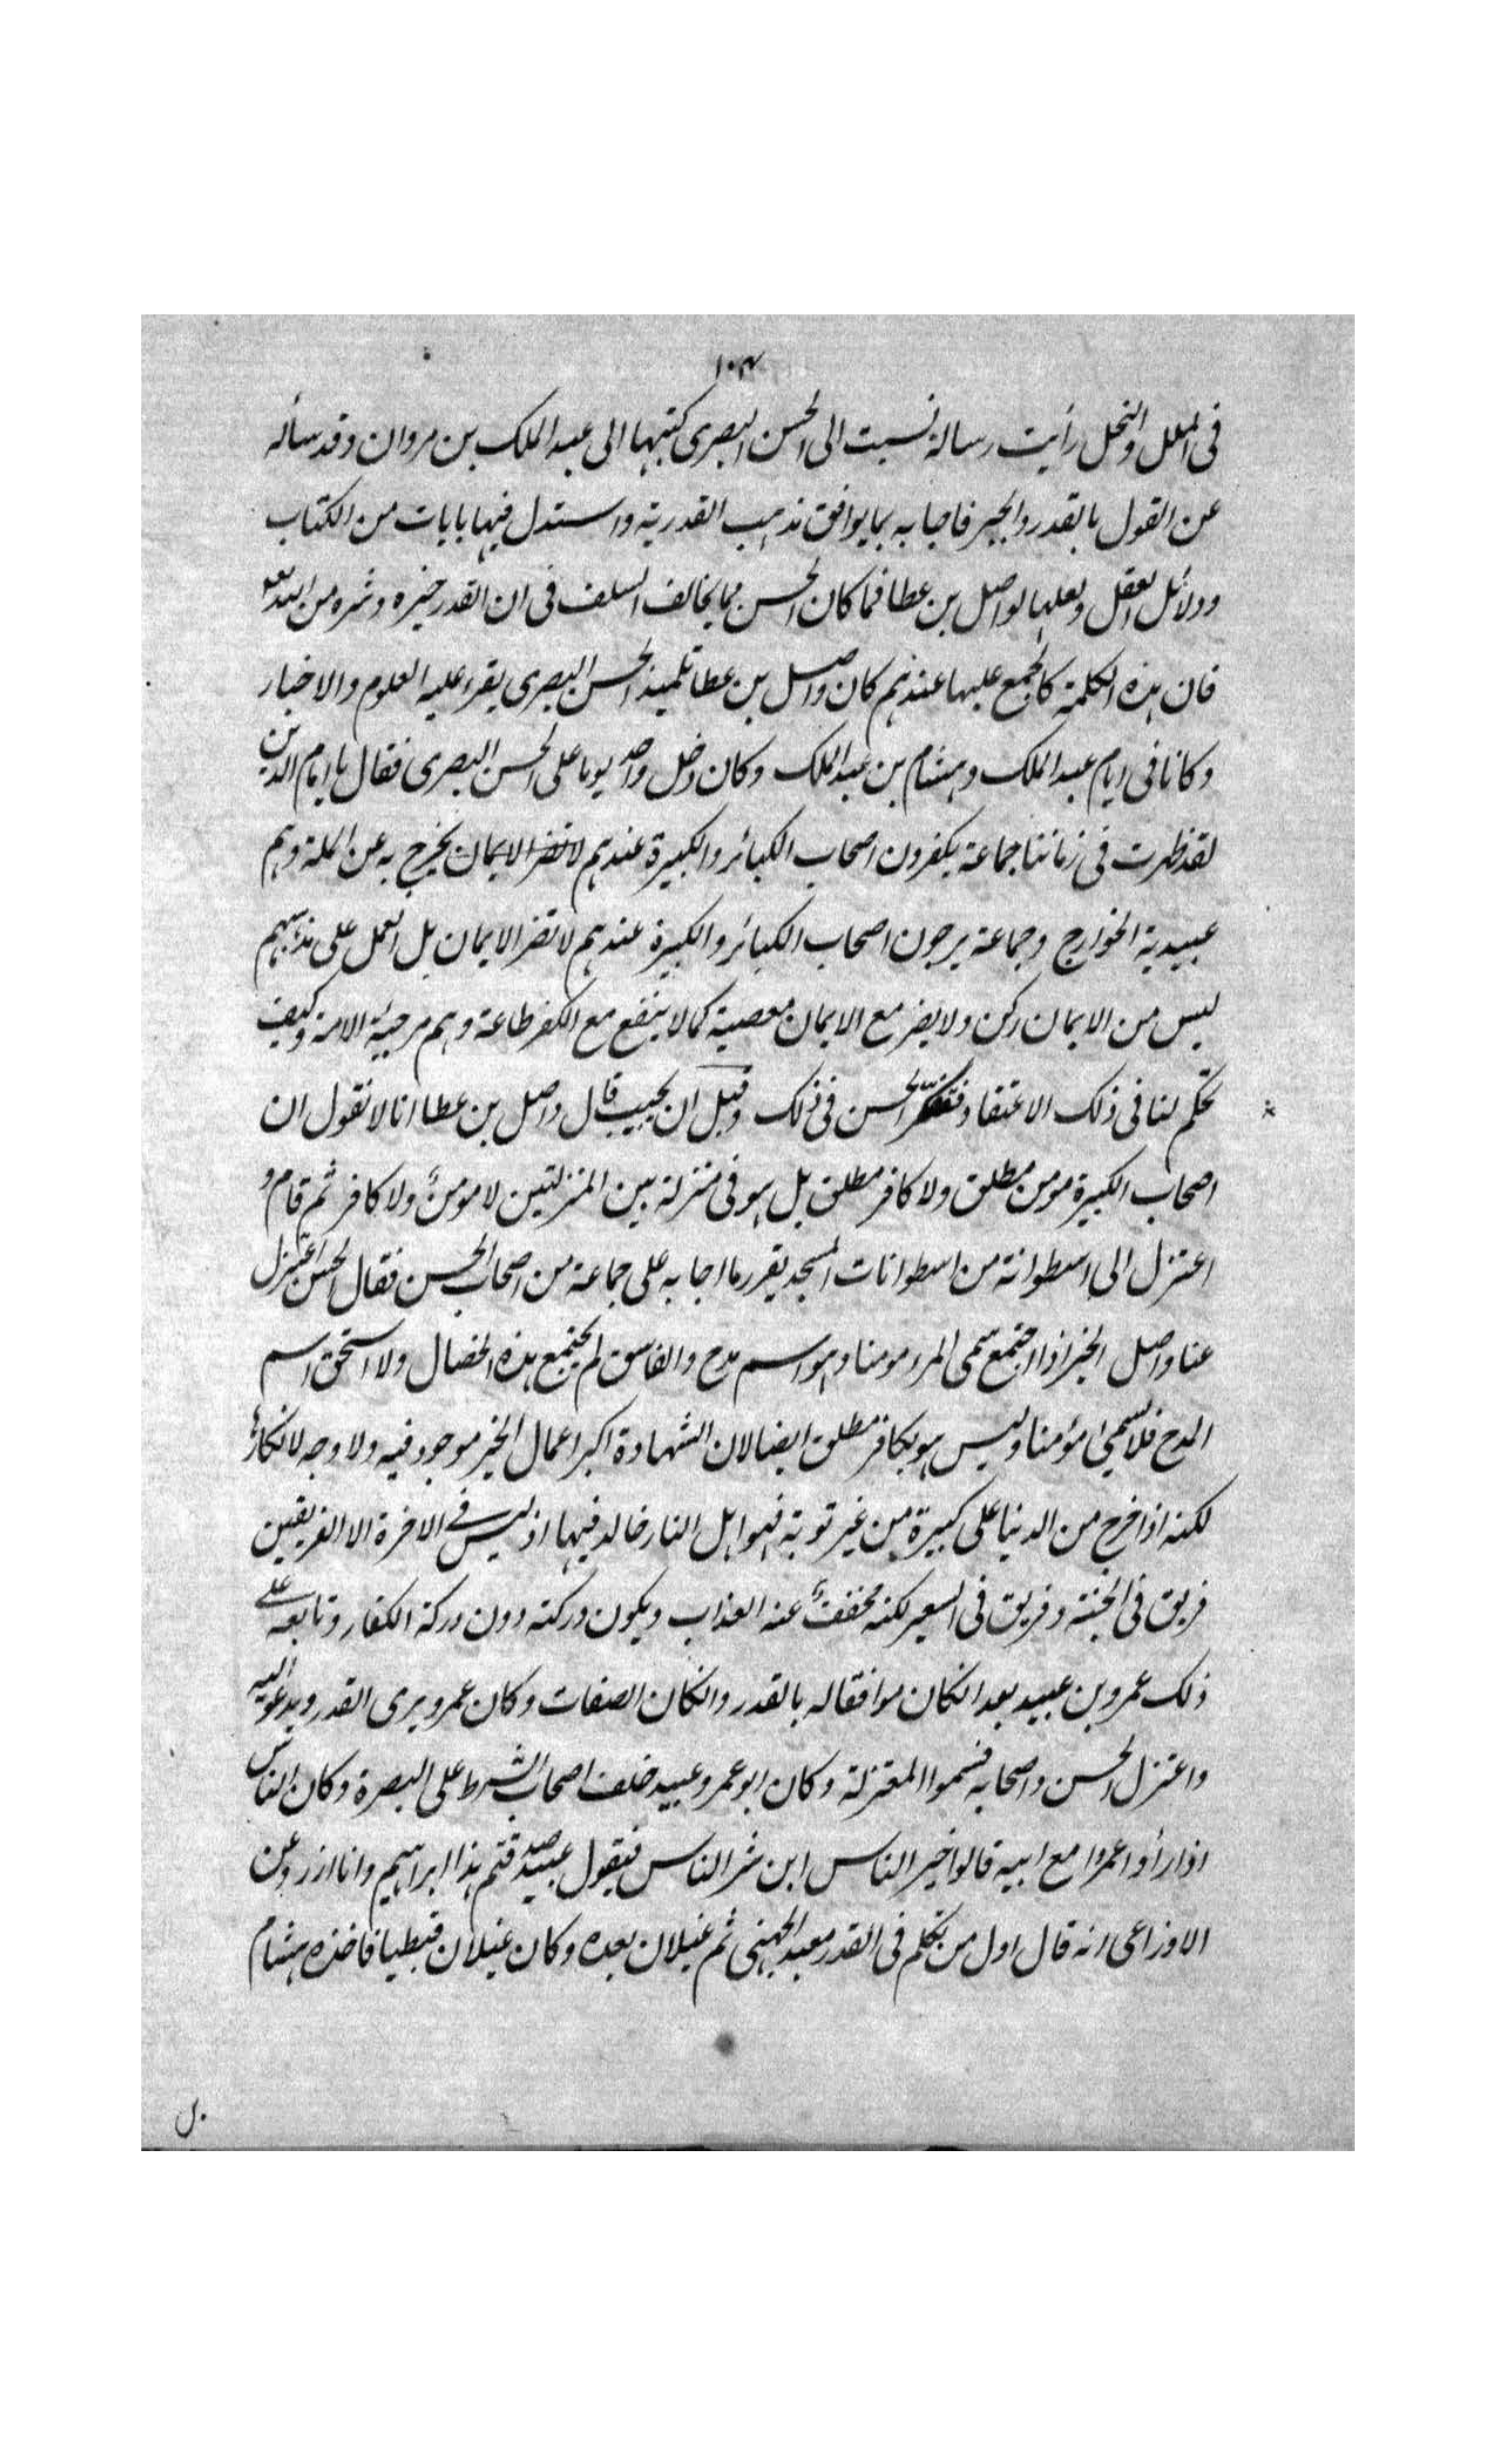 ١٠٣
فى الملل والنحل رأيت رسالة نسبت الى الحسن البصرى كتبها الى عبد الملك بن مروان وقد سأله
عن القول بالقدر والجبر فاجابه بما يوافق مذهب القدرية واستدل فيها بايات من الكتاب
ودلائل العقل ولعلها لواصل بن عطا فما كان الحسن مما يخالف السلف فى ان القدر خيره وشره من الله تعـ
فان هذه الكلمة كالمجمع عليها عندهم كان واصل بن عطا تلميذ الحسن البصرى يقرء عليه العلوم والاخبار
وكانا فى ايام عبد الملك وهشام بن عبد الملك وكان دخل واحد يوما على الحسن البصرى فقال يا امام الدين
لقد ظهرت فى زماننا جماعة يكفرون اصحاب الكبائر والكبيرة عندهم لا تضر الايمان يخرج به عن الملة وهم
عبيدية الخوارج وجماعة يرجون اصحاب الكبائر والكبيرة عندهم لا تضر الايمان بل العمل على مذهبهم
ليس من الايمان ركن ولا يضر مع الايمان معصية كما لا ينفع مع الكفر طاعة وهم مرجئه الامة وكيف
تحكم لنا فى ذلك الاعتقاد فتفكر الحسن فى ذلك وقبل ان يجيب قال واصل بن عطا انا لا نقول ان
اصحاب الكبيرة مومن مطلق ولا كافر مطلق بل هو فى منزلة بين المنزلتين لا مومن ولا كافر ثم قام و
اعتزل الى اسطوانة من اسطوانات المسجد يقرر ما اجابه على جماعة من اصحاب الحسن فقال الحسن اعتزل
عنا واصل الخير اذا اجتمع سمى المرء مومنا وهو اسم مدح والفاسق لم يجتمع هذه الخصال ولا استحق اسم
المدح فلا يسمى مؤمنا وليس هو بكافر مطلق ايضا لان الشهادة اكبر اعمال الخير موجود فيه ولا وجه لانكارها
لكنه اذا خرج من الدنيا على كبيرة من غير توبة فهو اهل النار خالد فيها اذ ليس فى الاخرة الا الفريقين
فريق فى الجنة وفريق فى السعير لكنه مخفف عنه العذاب ويكون دركته دون دركة الكفار وتابعه على
ذلك عمرو بن عبيد بعد انكان موافقا له بالقدر وانكان الصفات وكان عمرو يرى القدر ويدعو اليه
واعتزل الحسن واصحابه فسموا المعتزلة وكان ابو عمرو عبيد خلف اصحاب الشرط على البصرة وكان الناس
اذا رأوا عمرا مع ابيه قالوا خير الناس ابن شر الناس فيقول عبيد صدقتم هذا ابراهيم وانا ازر وعن
الاوزاعى انه قال اول من تكلم فى القدر معبد الجهنى ثم غيلان بعده وكان غيلان قبطيا فاخذه هشام